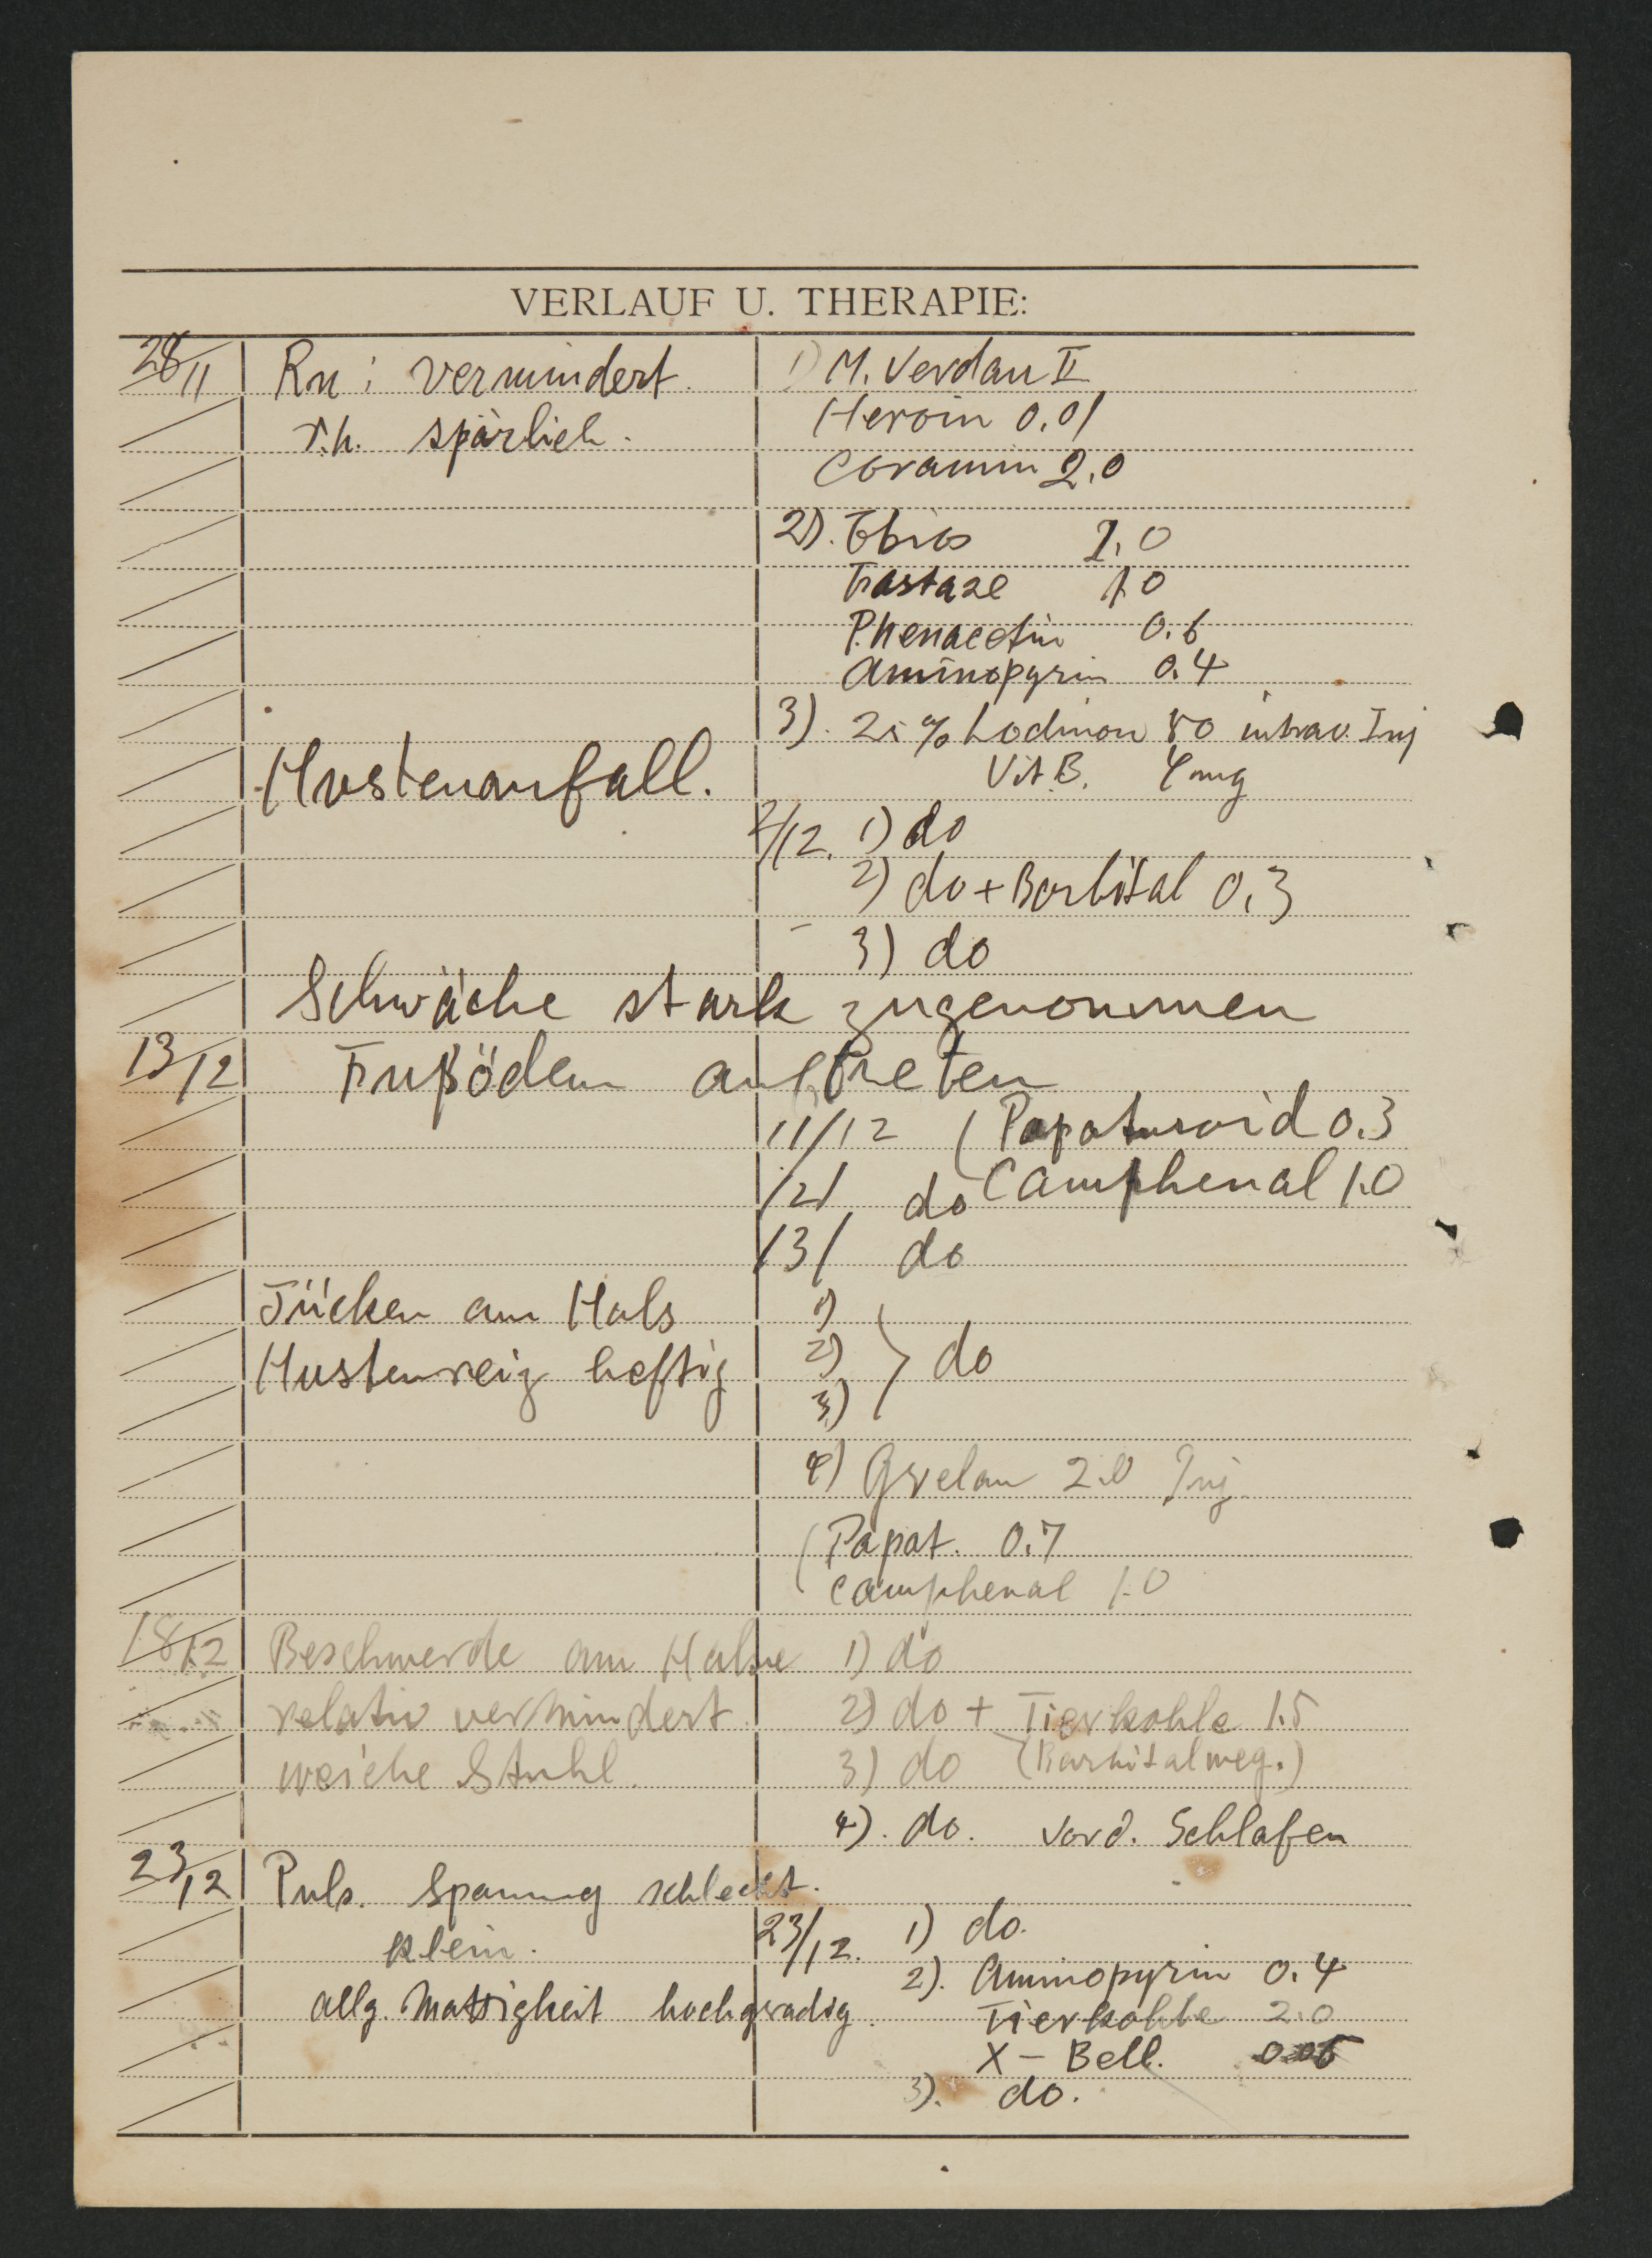 VERLAUF U. THERAPIE:
28/11 Rn: vermindert. 1) M. Verdau II
r.h. spärlich. Heroin 0.01
Coramin 2.0
2). Ebios 2.0
Tiastase 1.0
Phenacetin 0.6
Aminopyrin 0.4
3). 25% Lodinon 80 intrav. Inj
Hustenanfall. Vit.B. 4mg
2/12. 1) do
2) do + Barbital 0.3
3) do
Schwäche stark zugenommen
13/12 Fußödem auftreten
11/12 ( Papatusoid 0.3
12/ do Camphenal 1.0
13/ do
Jücken am Hals 1)
Hustenreiz heftig 2) } do
3)
4) Grelan 2.0 Inj.
( Papat. 0.7
Camphenal 1.0
18/12 Beschwerde am Halse 1) do
relativ vermindert. 2) do + Tierkohle 1.5
weiche Stuhl. 3) do (Barbital weg.)
4). do. vor d. Schlafen
23/12 Puls. Spannung schlecht.
klein. 23/12. 1) do.
2). Aminopyrin 0.4
allg. Mattigkeit hochgradig. Tierkohle 2.0
X - Bell. 0.05
3). do.